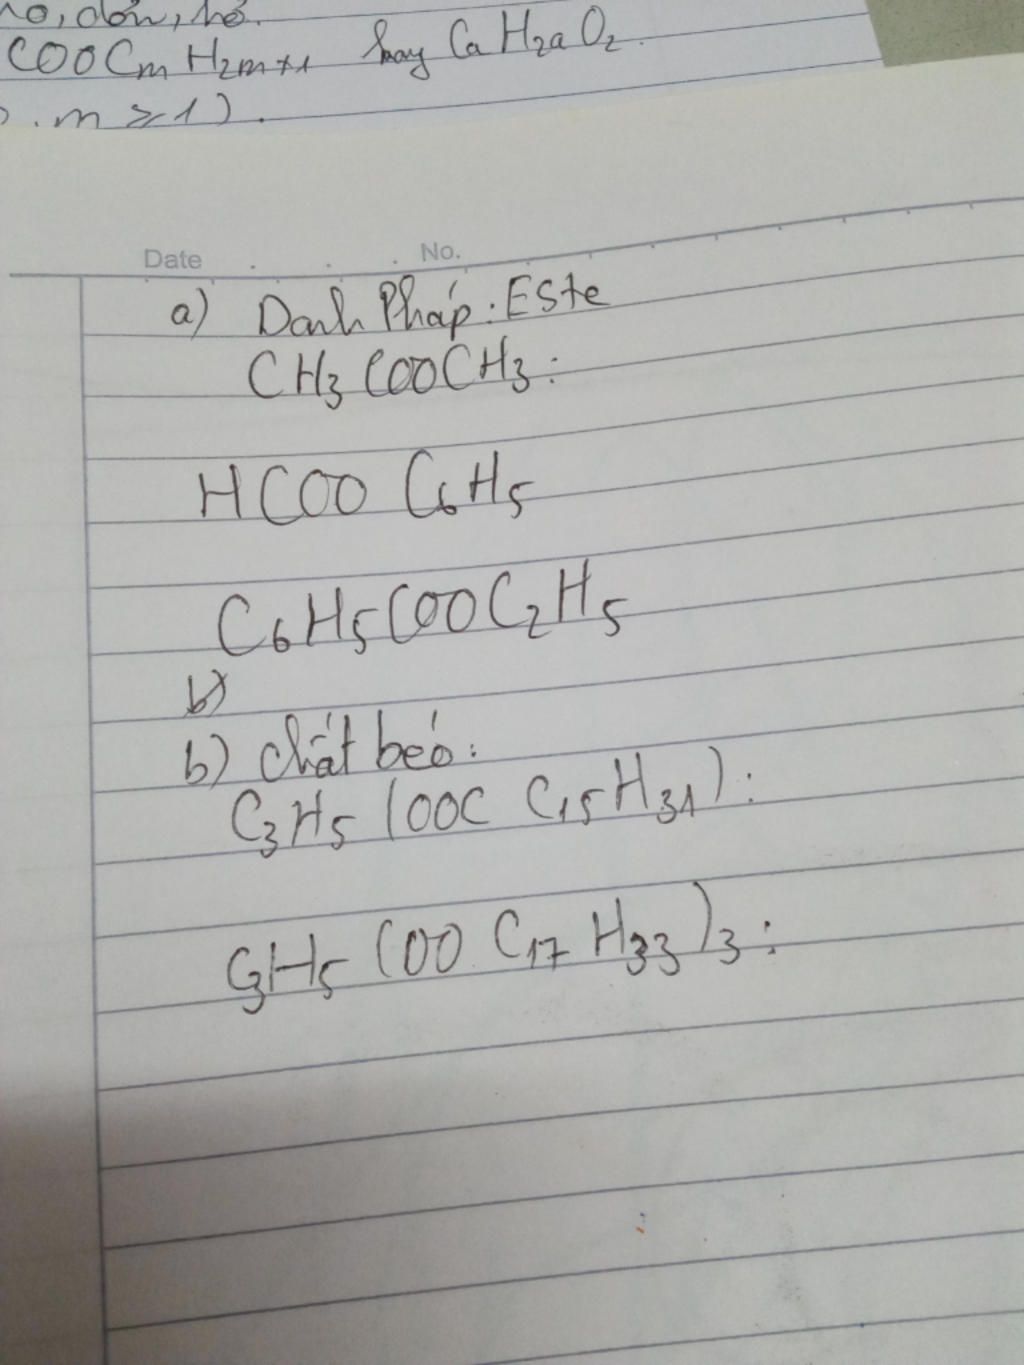 no, đơn, hở.
COOCmH2m+1 hay CaH2aO2.
. m ≥ 1).
Date . . . No.
a) Danh Pháp: ESte
CH3COOCH3:
HCOO C6H5
C6H5COOC2H5
b)
b) chất béo:
C3H5 (OOC C15H31):
C3H5 (OO C17 H33)3: